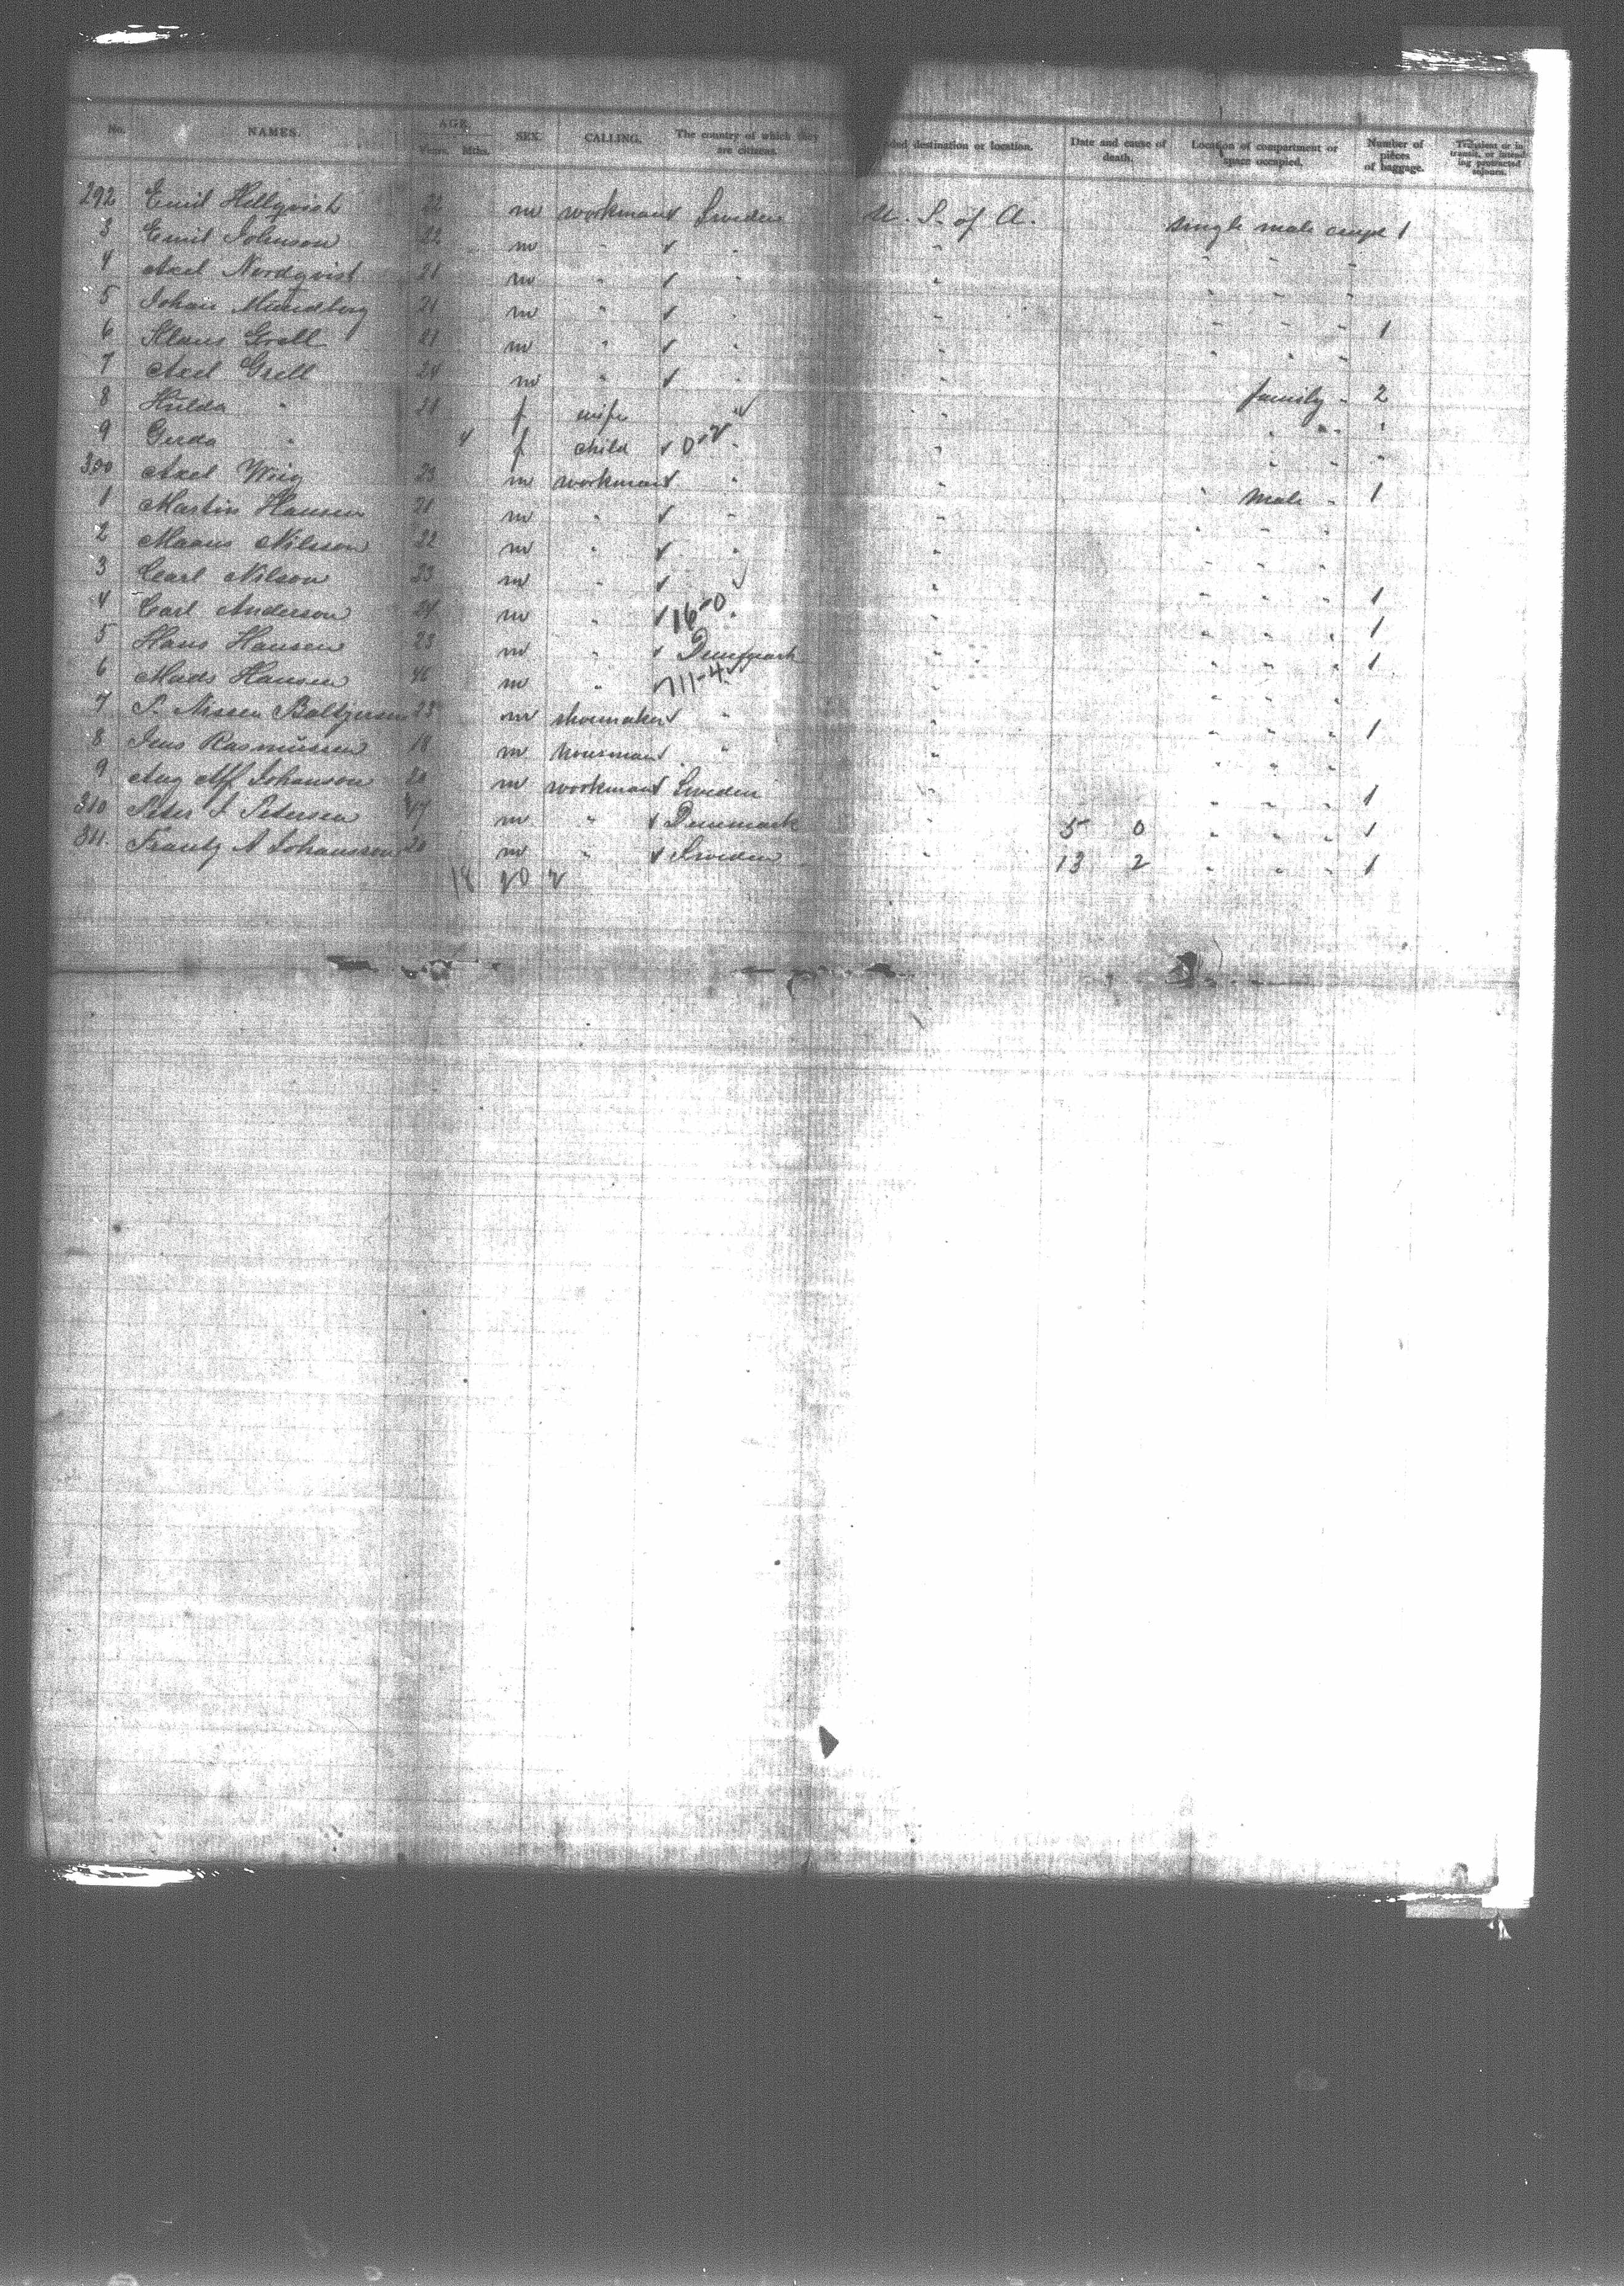 No. NAMES. AGE. Years. Mths. SEX. CALLING. The country of which they are citizens. ded destination or location. Date and cause of death. Location of compartment or space occupied. Number of pieces of baggage. Transient or in transit, or intending protracted sojourn.
292 Emil Hellqvist 22 m workman Sweden U. S. of A. single male 1
3 Emil Johnson 22 m " "
4 Axel Nordqvist 21 m " "
5 Johan Mundberg 21 m " " 1
6 Klaus Grell 21 m " "
7 Axel Grell 24 m " " family " 2
8 Hilda " 21 f wife " "
9 Gerda " 4 f child 0-2 "
300 Axel Wiig 23 m workman " " male " 1
1 Martin Hansen 21 m " " "
2 Maans Nilsson 22 m " " "
3 Carl Nilson 23 m " " " 1
4 Carl Anderson 24 m " 16-0 " 1
5 Hans Hansen 23 m " Denmark " 1
6 Mads Hansen 46 m " 11-4 "
7 P. Nissen 23 m shoemaker " " 1
8 Jens Rasmussen 18 m " "
9 Aug Alf Johanson 20 m workman Sweden " 1
310 Peter J Petersen 47 m " Denmark 5 0 " " " 1
311. Frantz A Johansson 20 m " Sweden " 13 2 " " " 1
18 20 2